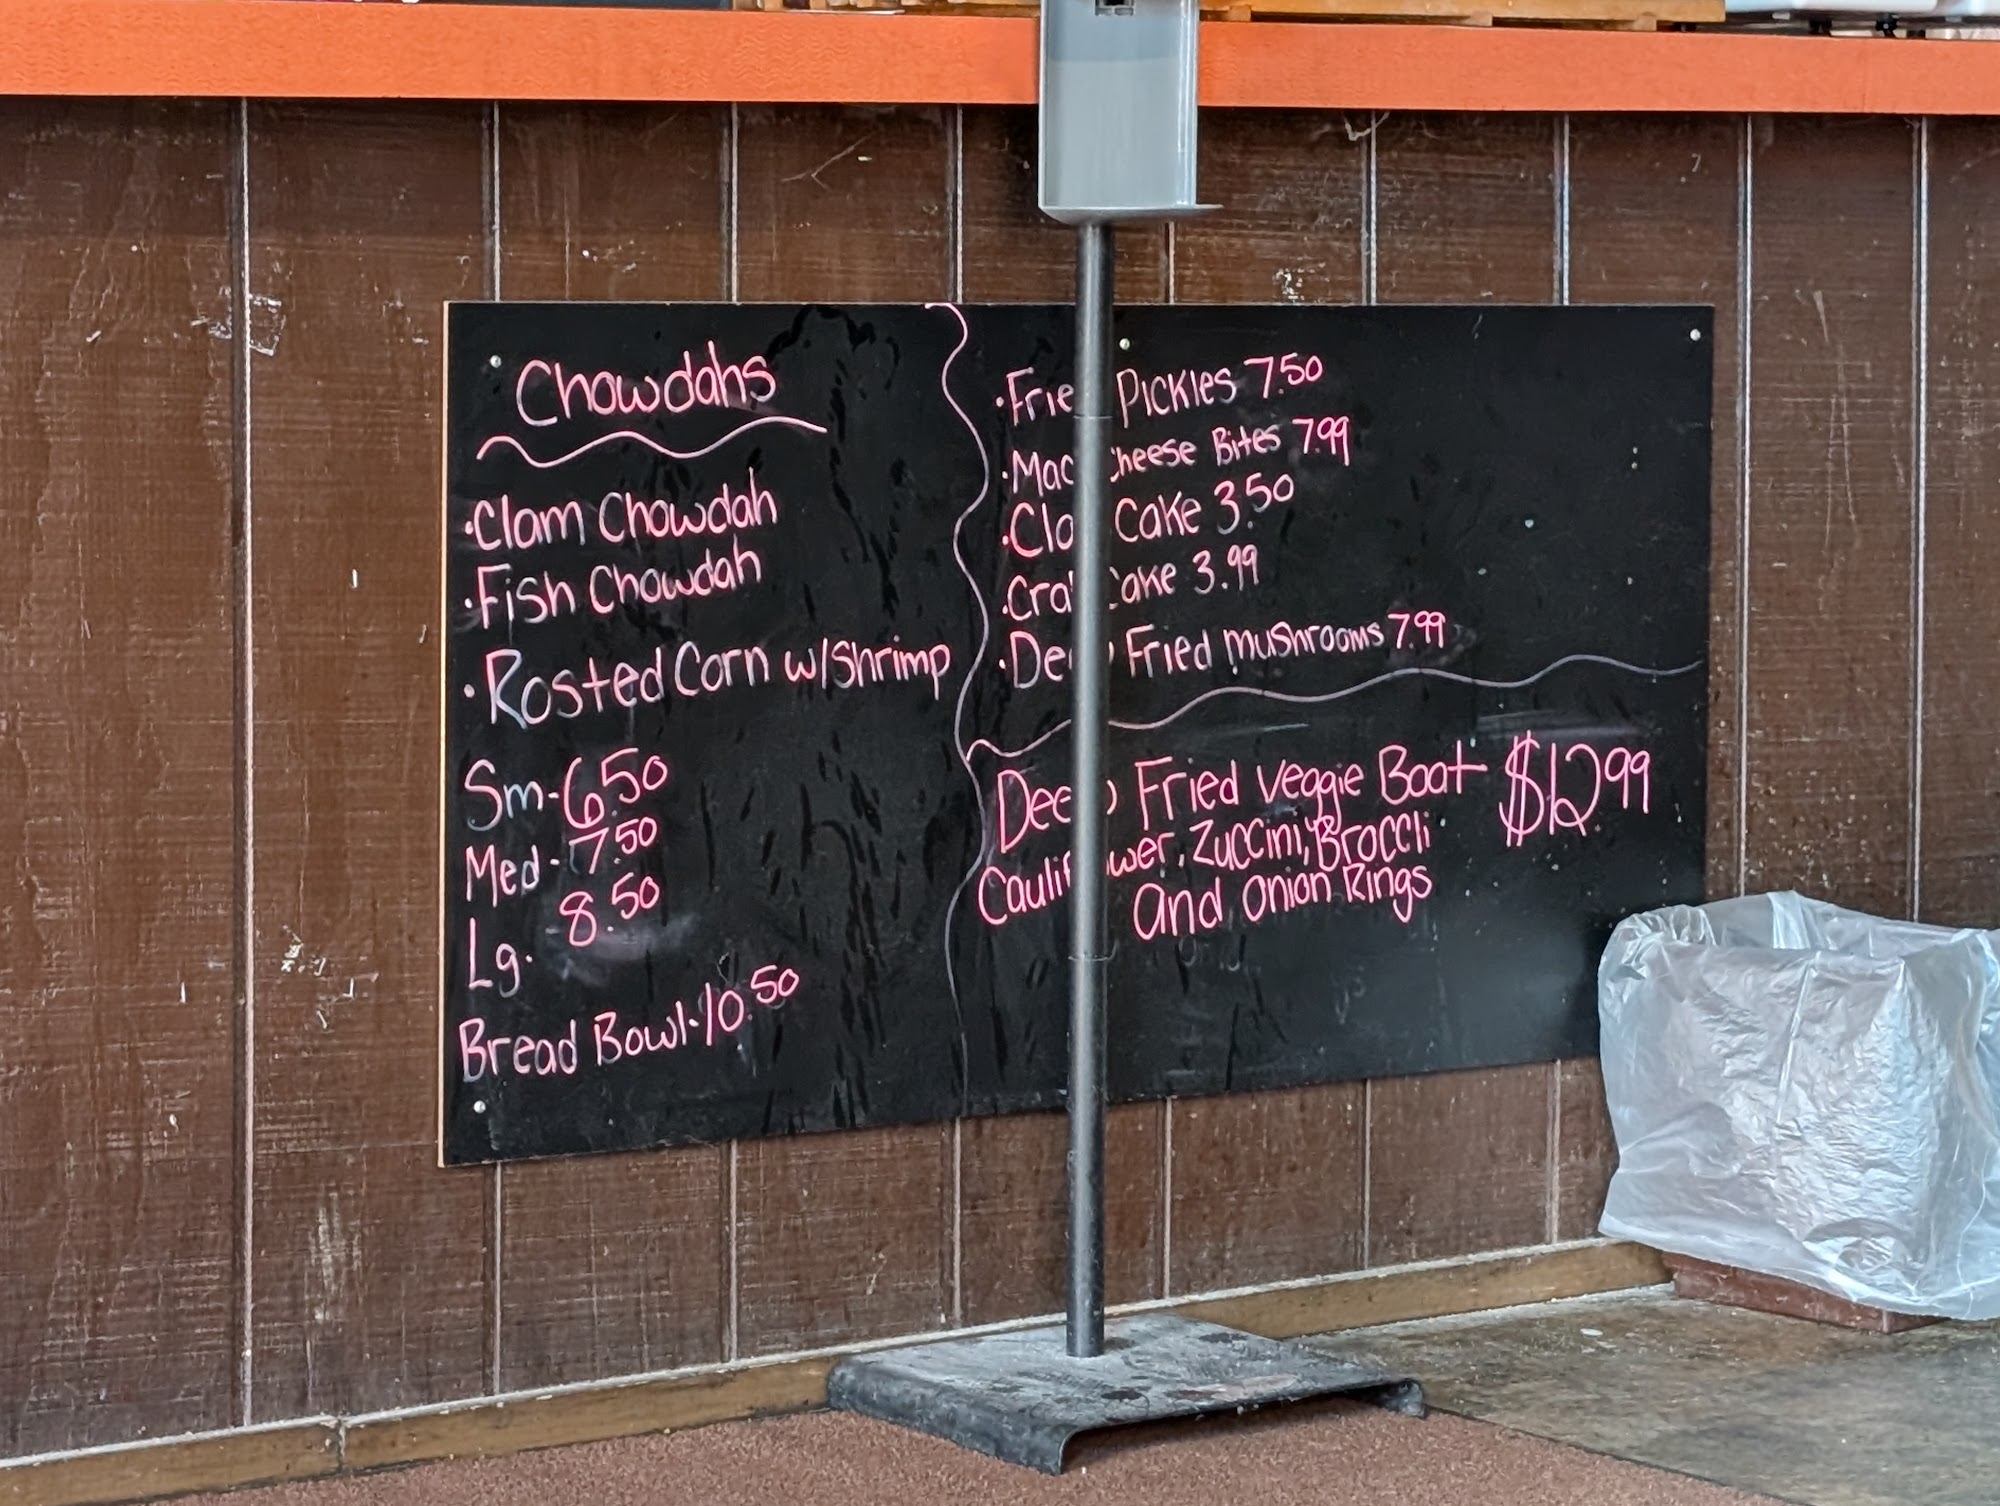 Chowdahs
·Clam Chowdah
·Fish Chowdah
·Rosted Corn w/shrimp
Sm-6.50
Med-7.50
Lg. 8.50
Bread Bowl-10.50
·Frie Pickles 7.50
·Mac Cheese Bites 7.99
·Cla Cake 3.50
·Crab Cake 3.99
·Deep Fried mushrooms 7.99
Deep Fried Veggie Boat $12.99
Cauliflower, Zuccini, Broccli
and Onion Rings